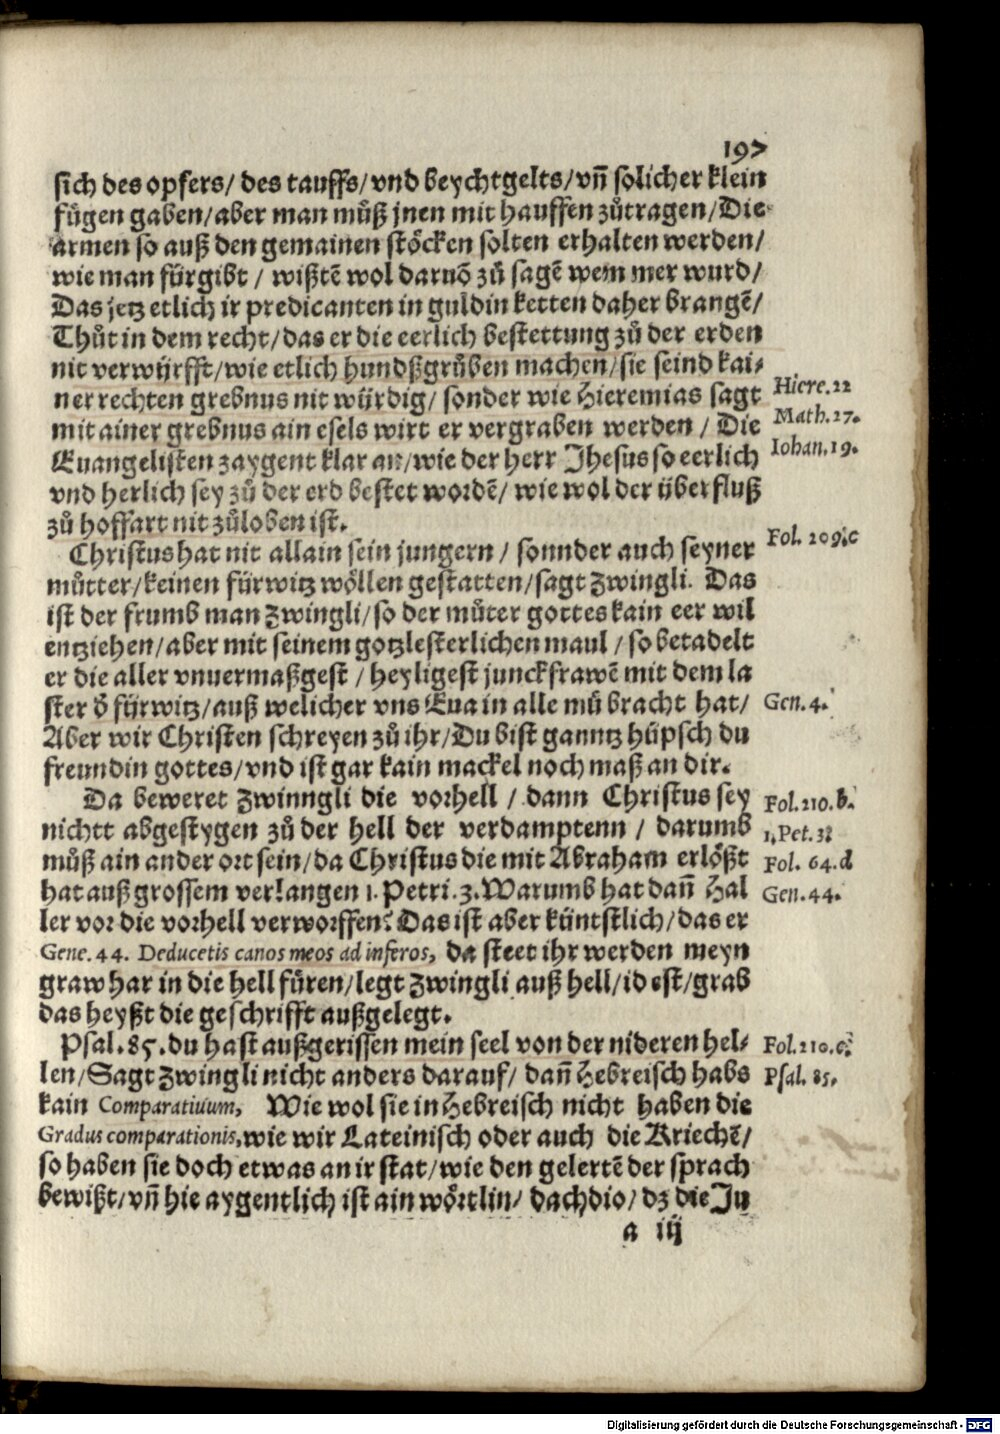 197
sich des opfers/ des tauffs/ vnd beychtgelts/ vñ solicher klein
fügen gaben/ aber man můß jnen mit hauffen zůtragen/ Die
armen so auß den gemainen stöcken solten erhalten werden/
wie man fürgibt / wißtẽ wol daruõ zů sagẽ wem mer wurd/
Das jetz etlich ir predicanten in guldin ketten daher brangẽ/
Thůt in dem recht/ das er die eerlich bestettung zů der erden
nit verwürfft/ wie etlich hundßgrůben machen/ sie seind kai-
ner rechten grebnus nit würdig/ sonder wie Hieremias sagt
Hiere. 22
mit ainer grebnus ain esels wirt er vergraben werden / Die
Math. 27.
Euangelisten zaygent klar an/ wie der herr Jhesus so eerlich
Iohan. 19.
vnd herlich sey zů der erd bestet wordẽ/ wie wol der überfluß
zů hoffart nit zůloben ist.
Christus hat nit allain sein jungern / sonnder auch seyner
Fol. 209. c
můtter/ keinen fürwitz wöllen gestatten/ sagt Zwingli. Das
ist der frumb man Zwingli/ so der můter gottes kain eer wil
entziehen/ aber mit seinem gotzlesterlichen maul / so betadelt
er die aller vnuermaßgest / heyligest junckfrawẽ mit dem la
ster ð fürwitz/ auß welicher vns Eua in alle mů bracht hat/
Gen. 4.
Aber wir Christen schreyen zů ihr/ Du bist ganntz hüpsch du
freundin gottes/ vnd ist gar kain mackel noch maß an dir.
Da beweret Zwinngli die vorhell / dann Christus sey
Fol. 210. b.
nichtt abgestygen zů der hell der verdamptenn / darumb
1. Pet. 3.
můß ain ander ort sein/ da Christus die mit Abraham erlößt
Fol. 64. d
hat auß grossem verlangen 1. Petri. 3. Warumb hat dañ Hal
Gen. 44.
ler vor die vorhell verworffen? Das ist aber küntstlich/ das er
Gene. 44. Deducetis canos meos ad inferos, da steet ihr werden meyn
graw har in die hell füren/ legt Zwingli auß hell/ id est/ grab
das heyßt die geschrifft außgelegt.
Psal. 85. du hast außgerissen mein seel von der nideren hel-
Fol. 210. c.
len/ Sagt Zwingli nicht anders darauf/ dañ Hebreisch habs
Psal. 85.
kain Comparatiuum, Wie wol sie in Hebreisch nicht haben die
Gradus comparationis, wie wir Lateinisch oder auch die Kriechẽ/
so haben sie doch etwas an ir stat/ wie den gelertẽ der sprach
bewißt/ vñ hie aygentlich ist ain wörtlin/ dachdio/ dz die Ju
a iij
Digitalisierung gefördert durch die Deutsche Forschungsgemeinschaft - DFG